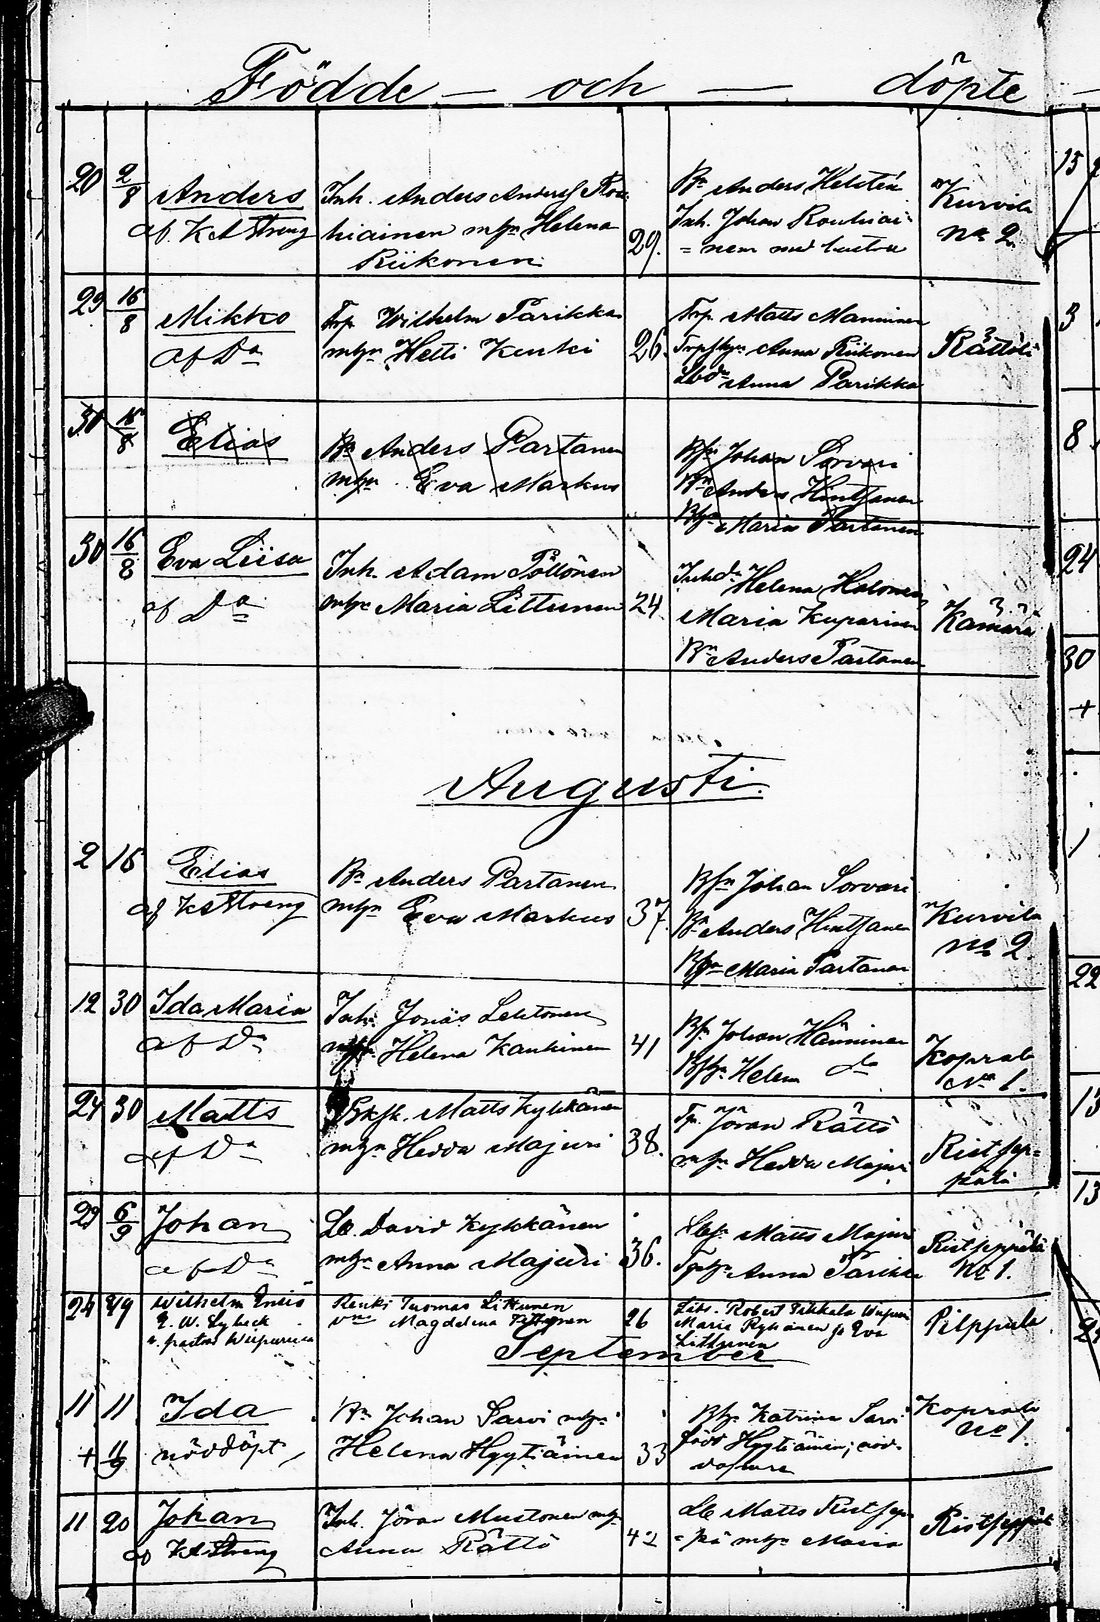 Födde — och — döpte
20 2/8 Anders
af K A Streng
Inh. Anders Anders. Rou-
hiainen mhn Helena
Riikonen
29.
Bn Anders Kelstén
Inh. Johan Rouhiai-
= nen med hustru
Kurvila
No 2.
29 16/8 Mikko
af Do
Trp Wilhelm Parikka
mhn Hetti Kenki
26.
Trp. Matts Manninen
Anna Riikonen
Anna Parikka
Rättölä
30 16/8 Elias
Bn Anders Partanen
mhn Eva Markus
Bsn Johan Sorvari
Bn Anders Hintsanen
Maria Partanen
30 16/8 Eva Liisa
af Do
Inh. Adam Pöllönen
mhn Maria Littunen
24.
Helena Halonen
Maria Kuparinen
Bn Anders Partanen
Kämärä
Augusti.
2 16 Elias
af K A Streng
Bn Anders Partanen
mhn Eva Markus
37.
Bsn Johan Sorvari
Bn Anders Hintsanen
Maria Partanen
Kurvila
No 2.
12 30 Ida Maria
af Do
Inh. Jonas Lehtonen
Helena Kauhinen
41
Johan Hänninen
Helena do
Koprala
No 1.
24 30 Matts
af Do
Matts Kykkänen
mhn Hedda Majuri
38.
Tp. Jöran Rättö
mhn Hedda Majuri
Ristsep-
pälä
29 6/9 Johan
af Do
Lb. David Kykkänen
mhn Anna Majuri
36.
Matts Majuri
Anna Parikka
Ristseppälä
No 1.
24 2/9 Wilhelm Ensio
G. W. Lybeck
Renki Tuomas Littunen
vmo Magdelena Pöllönen
26
Robert Pekkala
Maria Rykänen ja Eva
Littunen
Pilppula
September
11 11 Ida
+ 11/9 nöddöpt
Bn Johan Sarvi mhn
Helena Hyytiäinen
33
Katrina Sarvi
född Hyytiäinen; nöd-
Koprala
No 1
11 20 Johan
af K A Streng
Inh. Jöran Mustonen mhn
Anna Rättö
42
Lb Matts Ristsep-
= pä mhn Maria
Ristseppälä